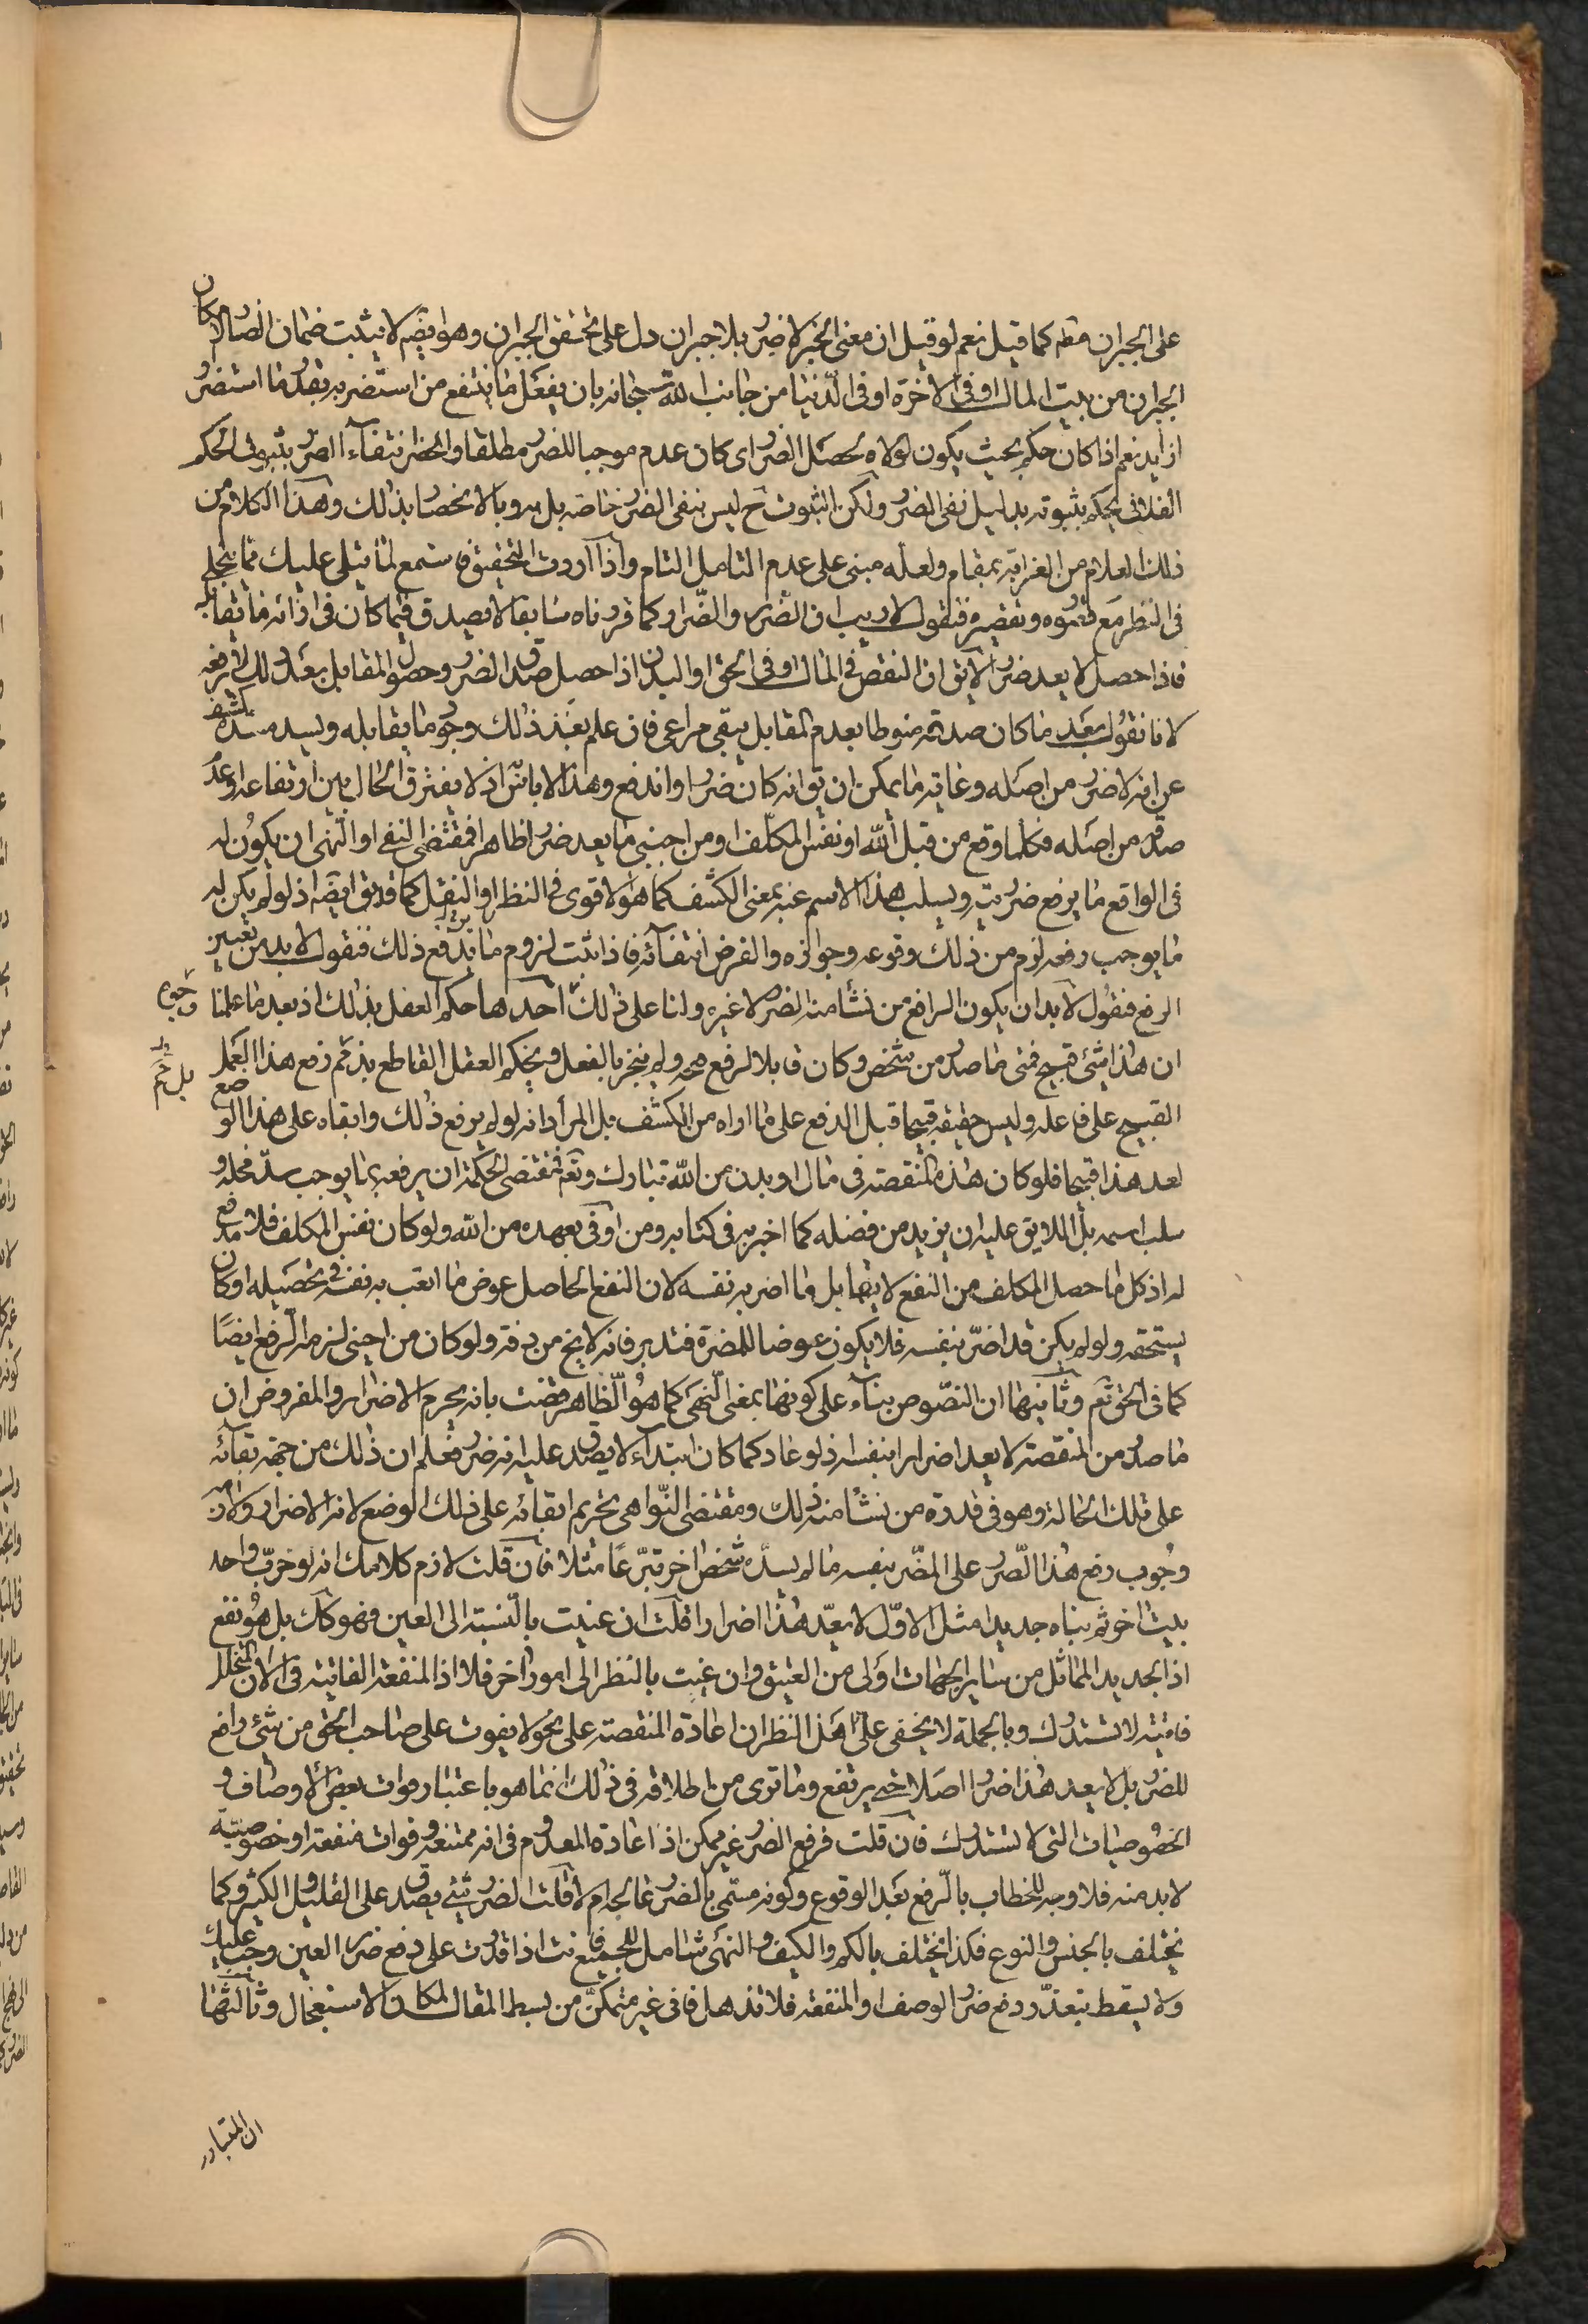 على الجبران مطم كما قيل نعم لو قيل ان معنى الخبر لا ضرر بلا جبران دل على تحقق الجبران وهو ايضم لا يثبت ضمان الضار لامكان
الجبران من بيت المال او فى الاخرة او فى الدنيا من جانب الله سبحانه بان يفعل ما ينتفع من استضر به بقدر ما استضر
ازيد نعم اذا كان حكم بحيث يكون لولاه يحصل الضرر اى كان عدم موجبا للضرر مطلقا وانحضر انتفاء الضرر بثبوت الحكم
الفلانى يحكم بثبوته بدليل نفى الضرر ولكن الثبوت ح ليس بنفى الضرر خاصة بل به وبالانحصار بذلك وهذا الكلام من
ذلك العلام من الغرابة بمقام ولعله مبنى على عدم التامل التام واذا اردت التحقيق فاستمع لما يتلى عليك مما ينجلى
فى النظر مع وتقصيره فنقول لا ريب ان الضرر والضرار كما قررناه سابقا لا يصدق فيما كان فى ازائه ما يقابله
فاذا حصل لا يعد ضررا لا يق ان النقص فى المال او فى الحق او البدن اذا حصل صدق الضرر وحصول المقابل بعد ذلك لا يرفعه
لانا نقول بعد ما كان صدقه منوطا بعدم المقابل يبقى مراعى فان علم بعد ذلك وجود ما يقابله ويسد مسده يكشف
عن انه لا ضرر من اصله وغاية ما يمكن ان يق انه كان ضررا واندفع وهذا لا باس اذ لا يفترق الحال بين ارتفاعه او عدم
صدقه من اصله فكلما وقع من قبل الله او نفس المكلف او من اجنبى ما يعد ضررا ظاهرا فمقتضى النفى او النهى ان يكون له
فى الواقع ما يرفع ضرريته ويسلب هذا الاسم عنه بمعنى الكشف كما هو الاقوى فى النظر او النقل كما قد يق ايضم اذ لو لم يكن له
ما يوجب رفعه لزم من ذلك وقوعه وجوازه والفرض انتفائه فاذا ثبت لزوم ما يدفع ذلك فنقول لا بد من تعيين
الرفع فنقول لا بد ان يكون الرافع من نشأ منه الضرر لا غيره ولنا على ذلك وجوه احدها حكم العقل بذلك اذ بعد ما علمنا
ان هذا شئ قبيح فمتى ما صدر من شخص وكان قابلا لرفع ولم ينجز بالفعل ويحكم العقل القاطع بذم رفع هذا العمل
القبيح على فاعله وليس حقيقة قبيحا قبل الدفع على ما اراه من الكشف بل المراد انه لو لم يرفع ذلك وابقاه على هذا الوضع
لعد هذا قبيحا فلو كان هذه المنقصة فى مال او بدن من الله تبارك وتعم فمقتضى الحكمة ان يرفعه بما يوجب سد محله و
سلب اسمه بل اللايق عليه ان يزيد من فضله كما اخبر به فى كتابه ومن اوفى بعهده من الله ولو كان نفس المكلف فلا مدفع
له اذ كل ما حصل المكلف من النفع لا يقابل ما اضر به نفسه لان النفع الحاصل عوض ما اتعب به نفسه فى تحصيله او كان
يستحقه ولو لم يكن قد اضر بنفسه فلا يكون عوضا للمضرة فتدبر فانه لا يخ من دقة ولو كان من اجنبى لزمه الرفع ايضا
كما فى الحق تعم وثانيها ان النصوص بناء على كونها بمعنى النهى كما هو الظاهر قضت بانه يحرم الاضرار والمفروض ان
ما صدر من المنقصة لا يعد اضرارا بنفسه اذ لو عاد كما كان ابتداء لا يصدق عليه انه ضرر فعلم ان ذلك من جهة بقائه
على تلك الحالة وهو فى قدرة من نشأ منه ذلك ومقتضى النواهى تحريم ابقائه على ذلك الوضع لانه الاضرار ولازمه
وجوب دفع هذا الضرر على المضر بنفسه ما لم يسده شخص اخر تبرعا مثلا فان قلت لازم كلامك انه لو خرب واحد
بيت اخر ثم بناه جديدا مثل الاول لا يعد هذا اضرارا قلت ان عنيت بالنسبة الى العين فهو كك بل هو نفع
اذ الجديد المماثل من ساير الجهات اولى من العتيق وان عنيت بالنظر الى امور اخر فلا اذ المنفعة الفائتة فى الآن المتخلل
فائتة لا تستدرك وبالجملة لا يخفى على اهل النظر ان اعادة المنقصة على نحو لا يفوت على صاحب الحق من شئ رافع
للضرر بل لا يعد هذا ضررا اصلا حتى يرتفع وما ترى من اطلاقه فى ذلك انما هو باعتبار فوات بعض الاوصاف و
الخصوصيات التى لا تستدرك فان قلت فرفع الضرر غير ممكن اذ اعادة المعدوم فى انه ممتنعة وفوات منفعة او خصوصية
لا بد منه فلا وجه للخطاب بالرفع بعد الوقوع وكونه مسمى بالضرر عالجه ام لا قلت الضرر شئ يصدق على القليل والكثير وكما
يختلف بالجنس والنوع فكذا يختلف بالكم والكيف والنهى شامل للجميع فانت اذا قدرت على دفع ضرر العين وجب عليك
ولا يسقط بتعذر دفع ضرر الوصف او المنفعة فلا تذهل فانى غير متمكن من بسط المقال لمكان الاستعجال وثالثها
ان المتبادر